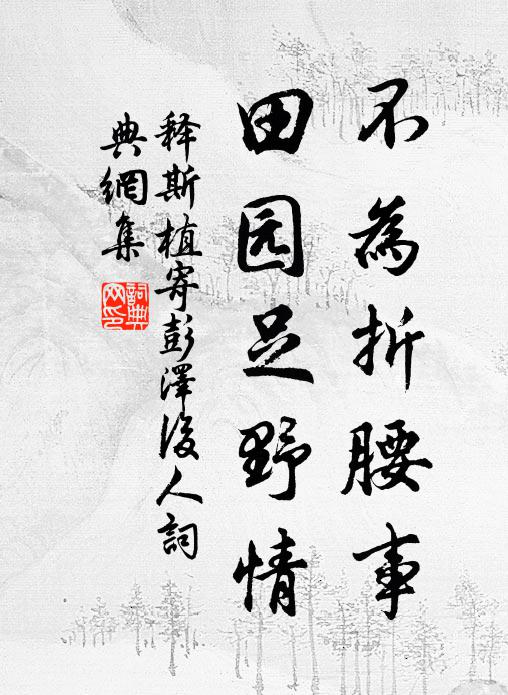 不為折腰事
田园足野情
释斯植寄彭澤後人詞
典網集
詞典网印